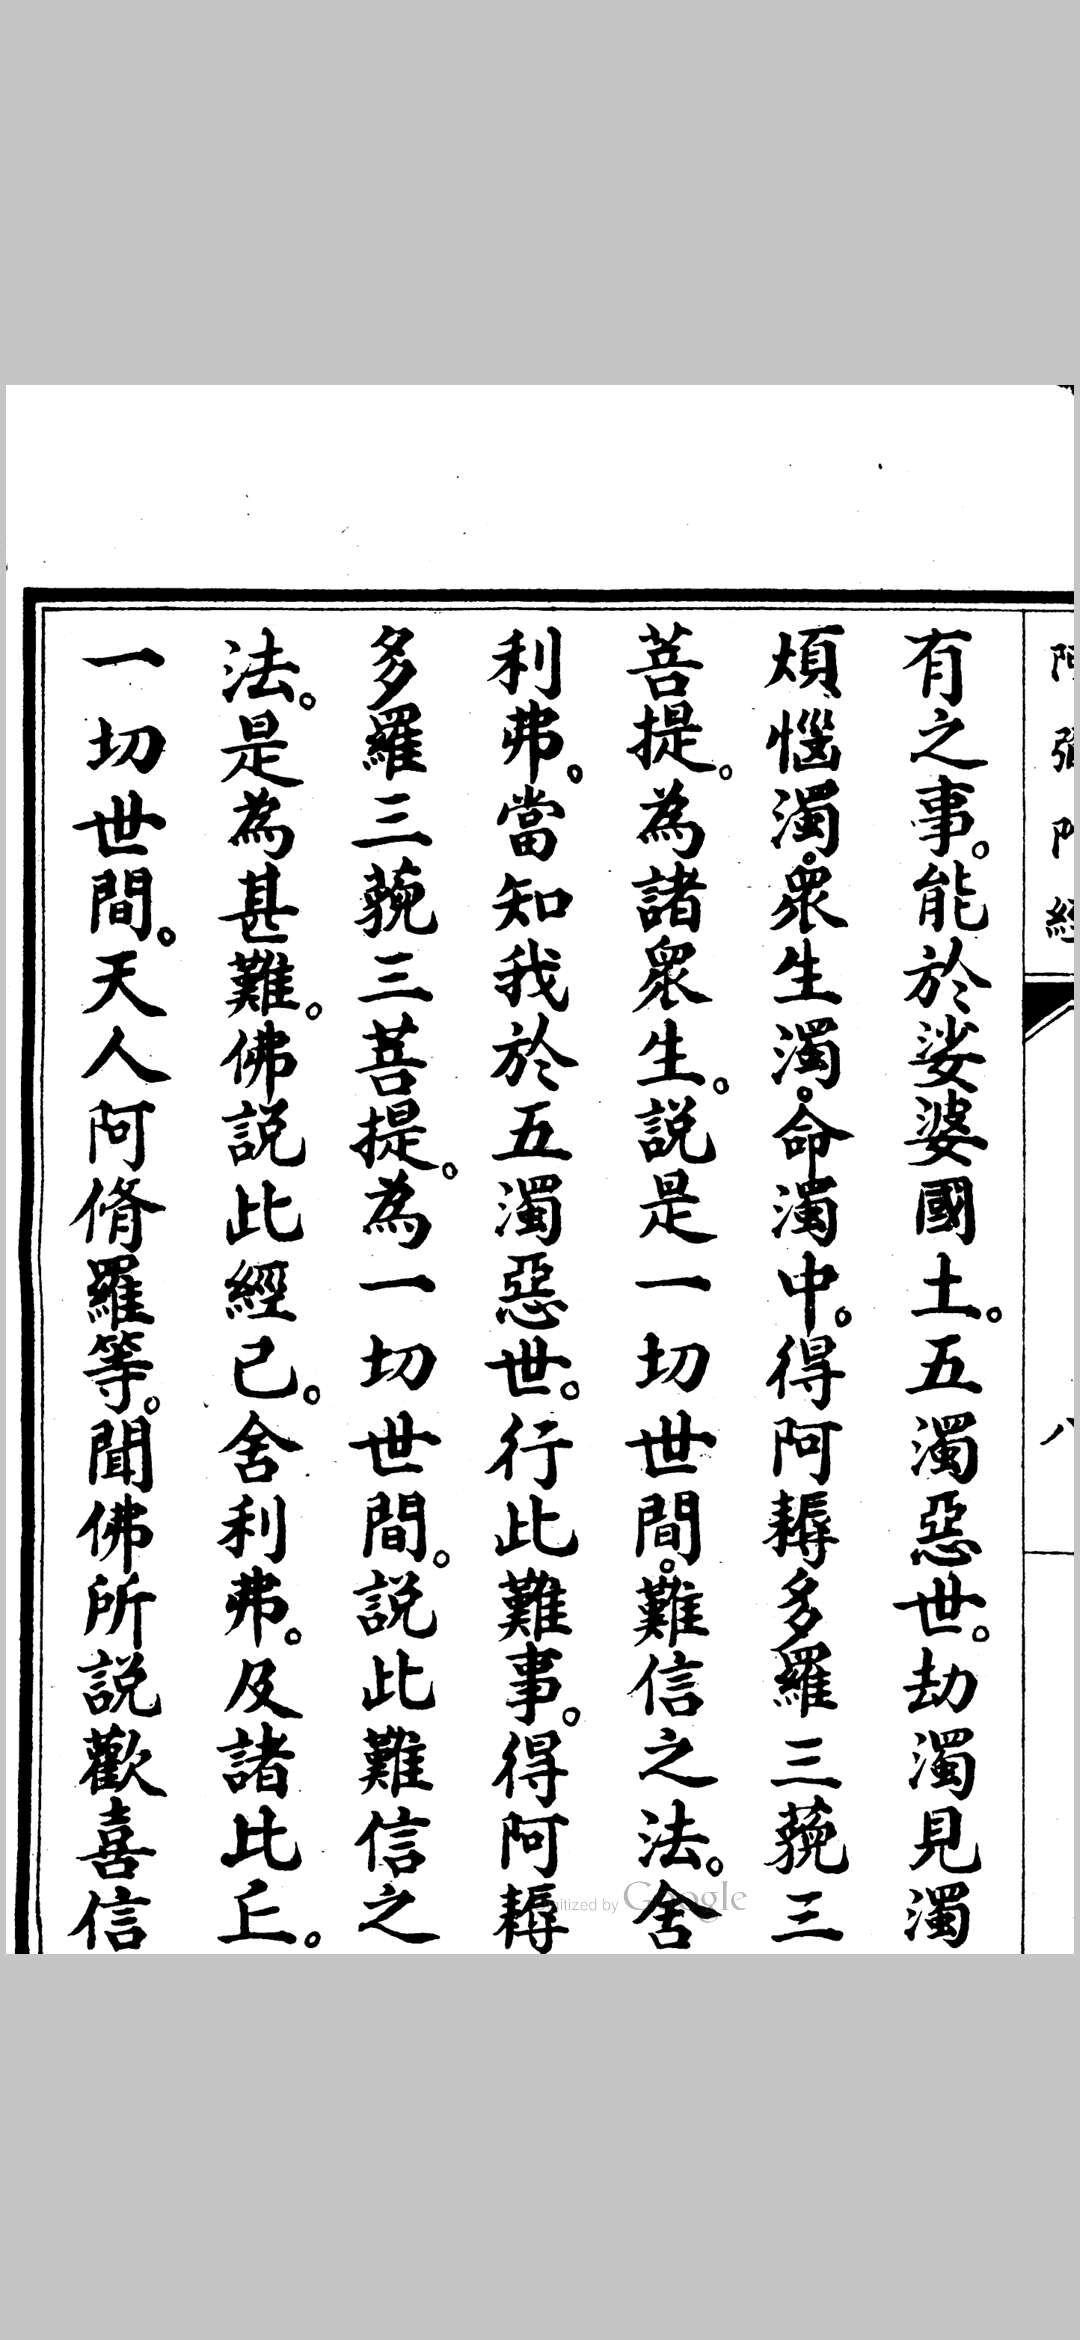 阿彌陀經
八
有之事。能於娑婆國土。五濁惡世。劫濁見濁
煩惱濁。眾生濁。命濁中。得阿耨多羅三藐三
菩提。為諸眾生。説是一切世間。難信之法。舍
利弗。當知我於五濁惡世。行此難事。得阿耨
多羅三藐三菩提。為一切世間。説此難信之
法。是為甚難。佛説此經已。舍利弗。及諸比丘。
一切世間。天人阿脩羅等。聞佛所説歡喜信
Digitized by Google